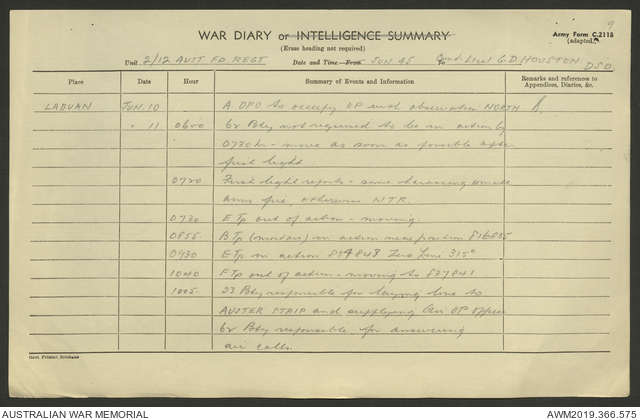 9
WAR DIARY or INTELLIGENCE SUMMARY
Army Form C.2118
(adapted)
(Erase heading not required)
Unit 2/12 AUST FD REGT Date and Time—From JUN 45 To Comd: Lieut G D HOUSTON DSO
Place Date Hour Summary of Events and Information Remarks and references to Appendices, Diaries, &c.
LABUAN JUN. 10 A OPO to occupy OP with observation NORTH.
" 11 0600 62 Bty not required to be in action by
0730 hr - move as soon as possible after
first light
0720 First light reports - some harassing small
arms fire, otherwise NTR.
0730 E Tp out of action - moving.
0855 B Tp (mortars) in action near position 816855
0930 E Tp in action 834843 Zero Line 315°
1040 F Tp out of action - moving to 837841
1005 23 Bty responsible for laying line to
AUSTER STRIP and supplying Air OP Officer
62 Bty responsible for answering
air calls.
Govt. Printer, Brisbane
AUSTRALIAN WAR MEMORIAL AWM2019.366.575